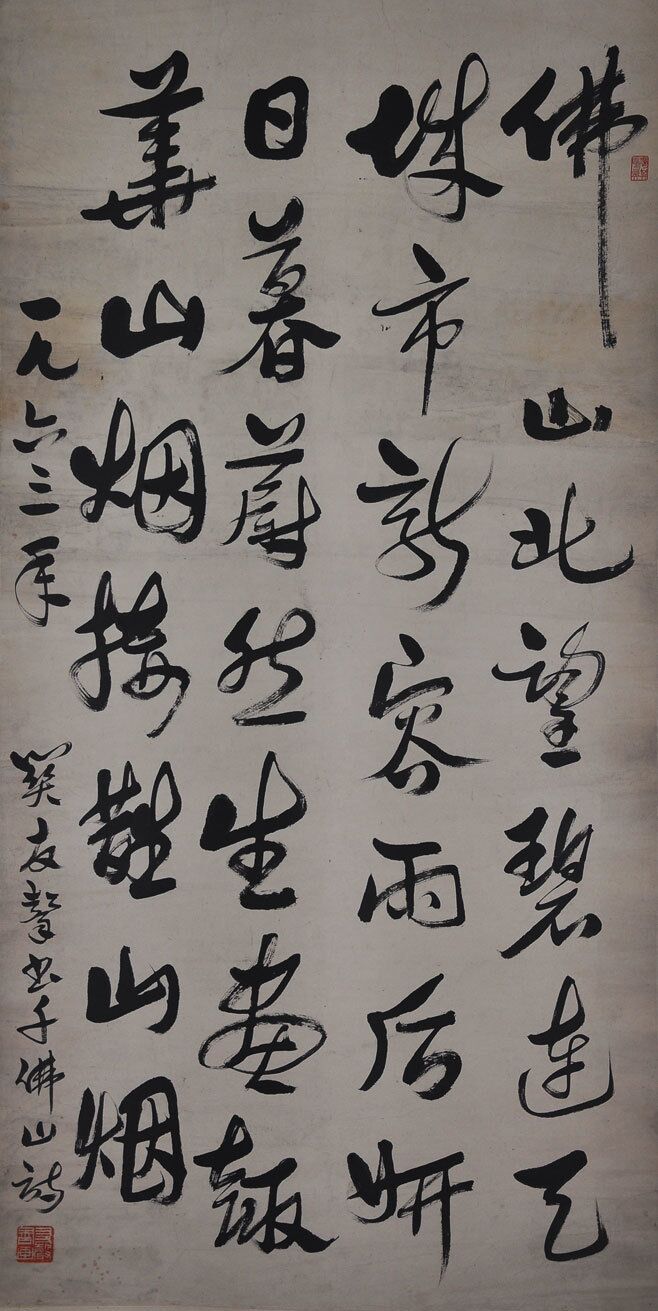 佛山北望碧连天
城市新容雨后妍
日暮蔚然生画趣
華山烟接鵲山烟
一九六三年
关友声书千佛山诗